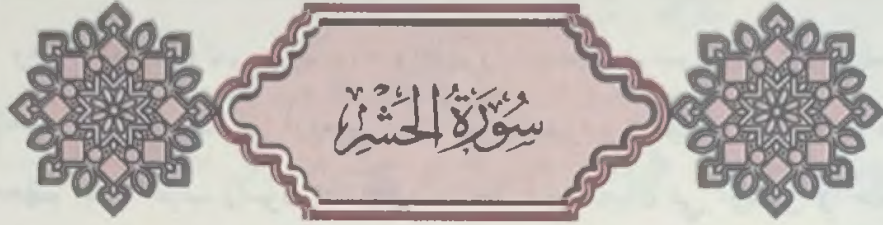 سُورَةُ الحَشْرِ